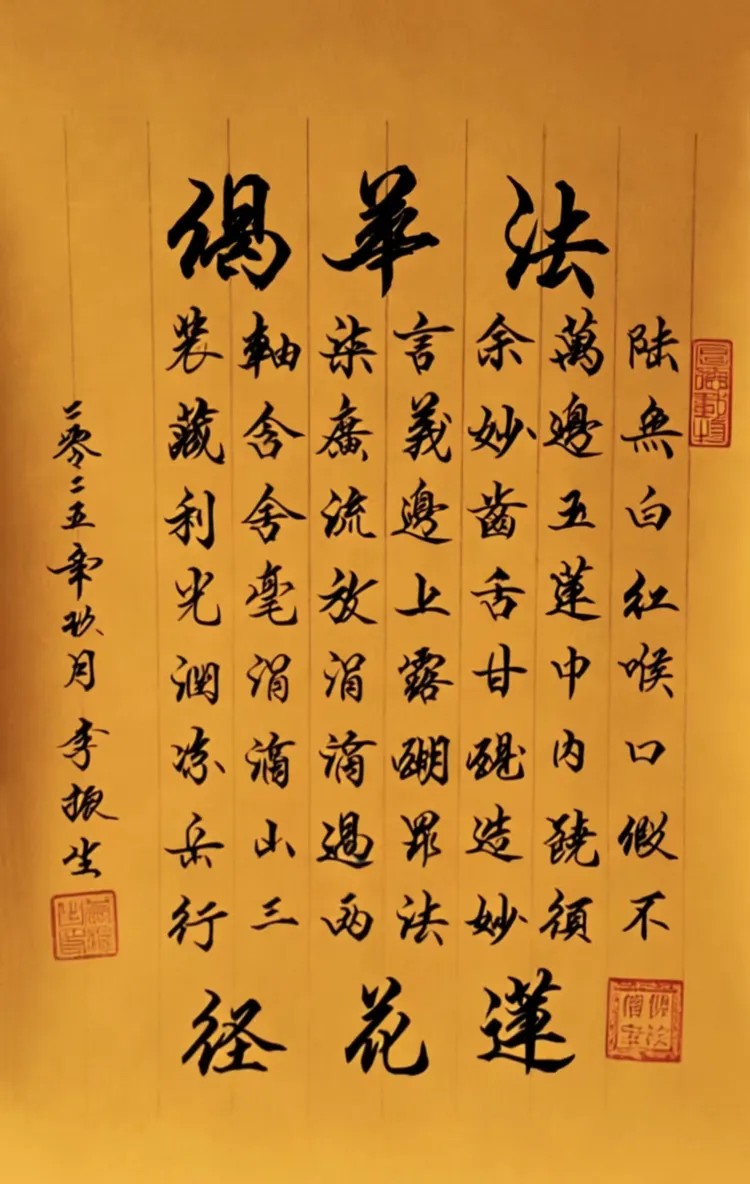 法華偈
陸萬余言柒軸裝
無邊妙義廣含藏
白玉齒邊流舍利
紅蓮舌上放毫光
喉中甘露涓涓潤
口内醍醐滴滴凉
假饒造罪過山岳
不須妙法兩三行
蓮花径
二零二五年玖月 李振生